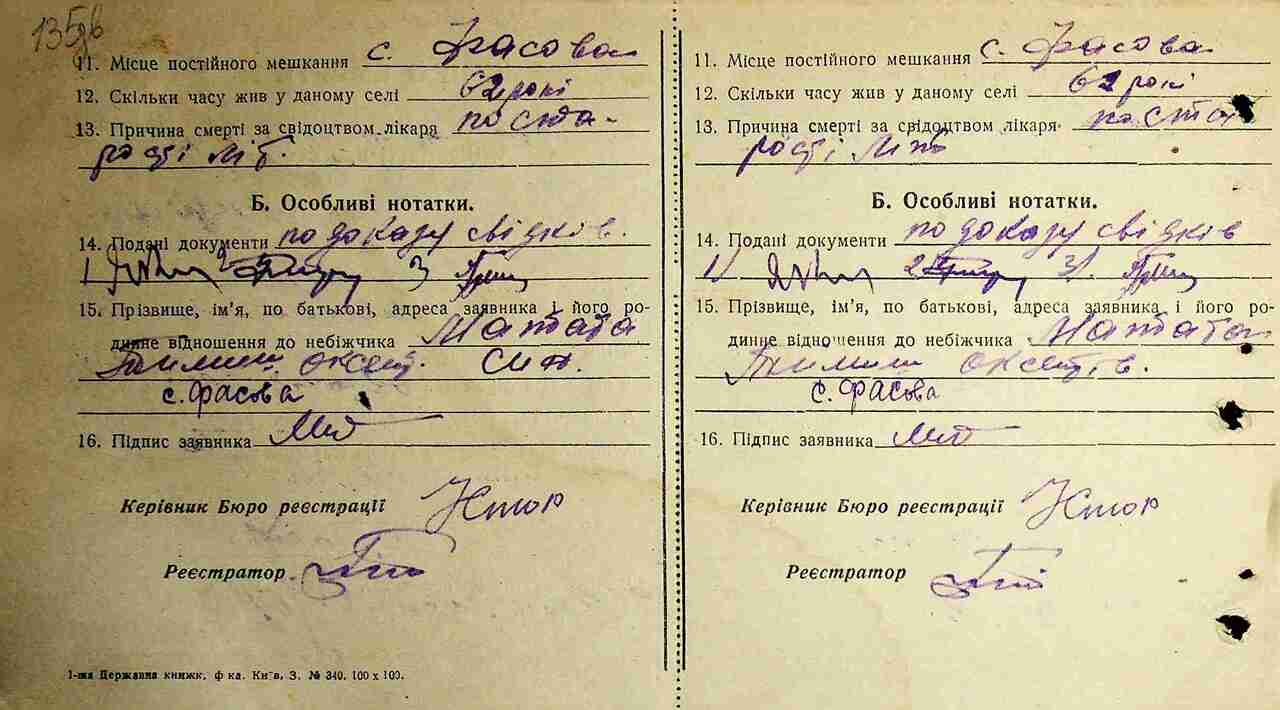 135зв
11. Місце постійного мешкання с. Фасова
12. Скільки часу жив у даному селі 62 роки
13. Причина смерті за свідоцтвом лікаря по ста-
рості літ.
Б. Особливі нотатки.
14. Подані документи по доказу свідків.
1) 2) 3)
15. Прізвище, ім'я, по батькові, адреса заявника і його ро-
динне відношення до небіжчика
Оксент. Син.
с. Фасова
16. Підпис заявника
Керівник Бюро реєстрації
Реєстратор
1-ша Державна книжк. ф-ка. Київ, З. № 340. 100 х 100.
11. Місце постійного мешкання с. Фасова
12. Скільки часу жив у даному селі 62 роки
13. Причина смерті за свідоцтвом лікаря по ста
рості літ
Б. Особливі нотатки.
14. Подані документи по доказу свідків
1) 2) 3).
15. Прізвище, ім'я, по батькові, адреса заявника і його ро-
динне відношення до небіжчика
с. Фасова
16. Підпис заявника
Керівник Бюро реєстрації
Реєстратор